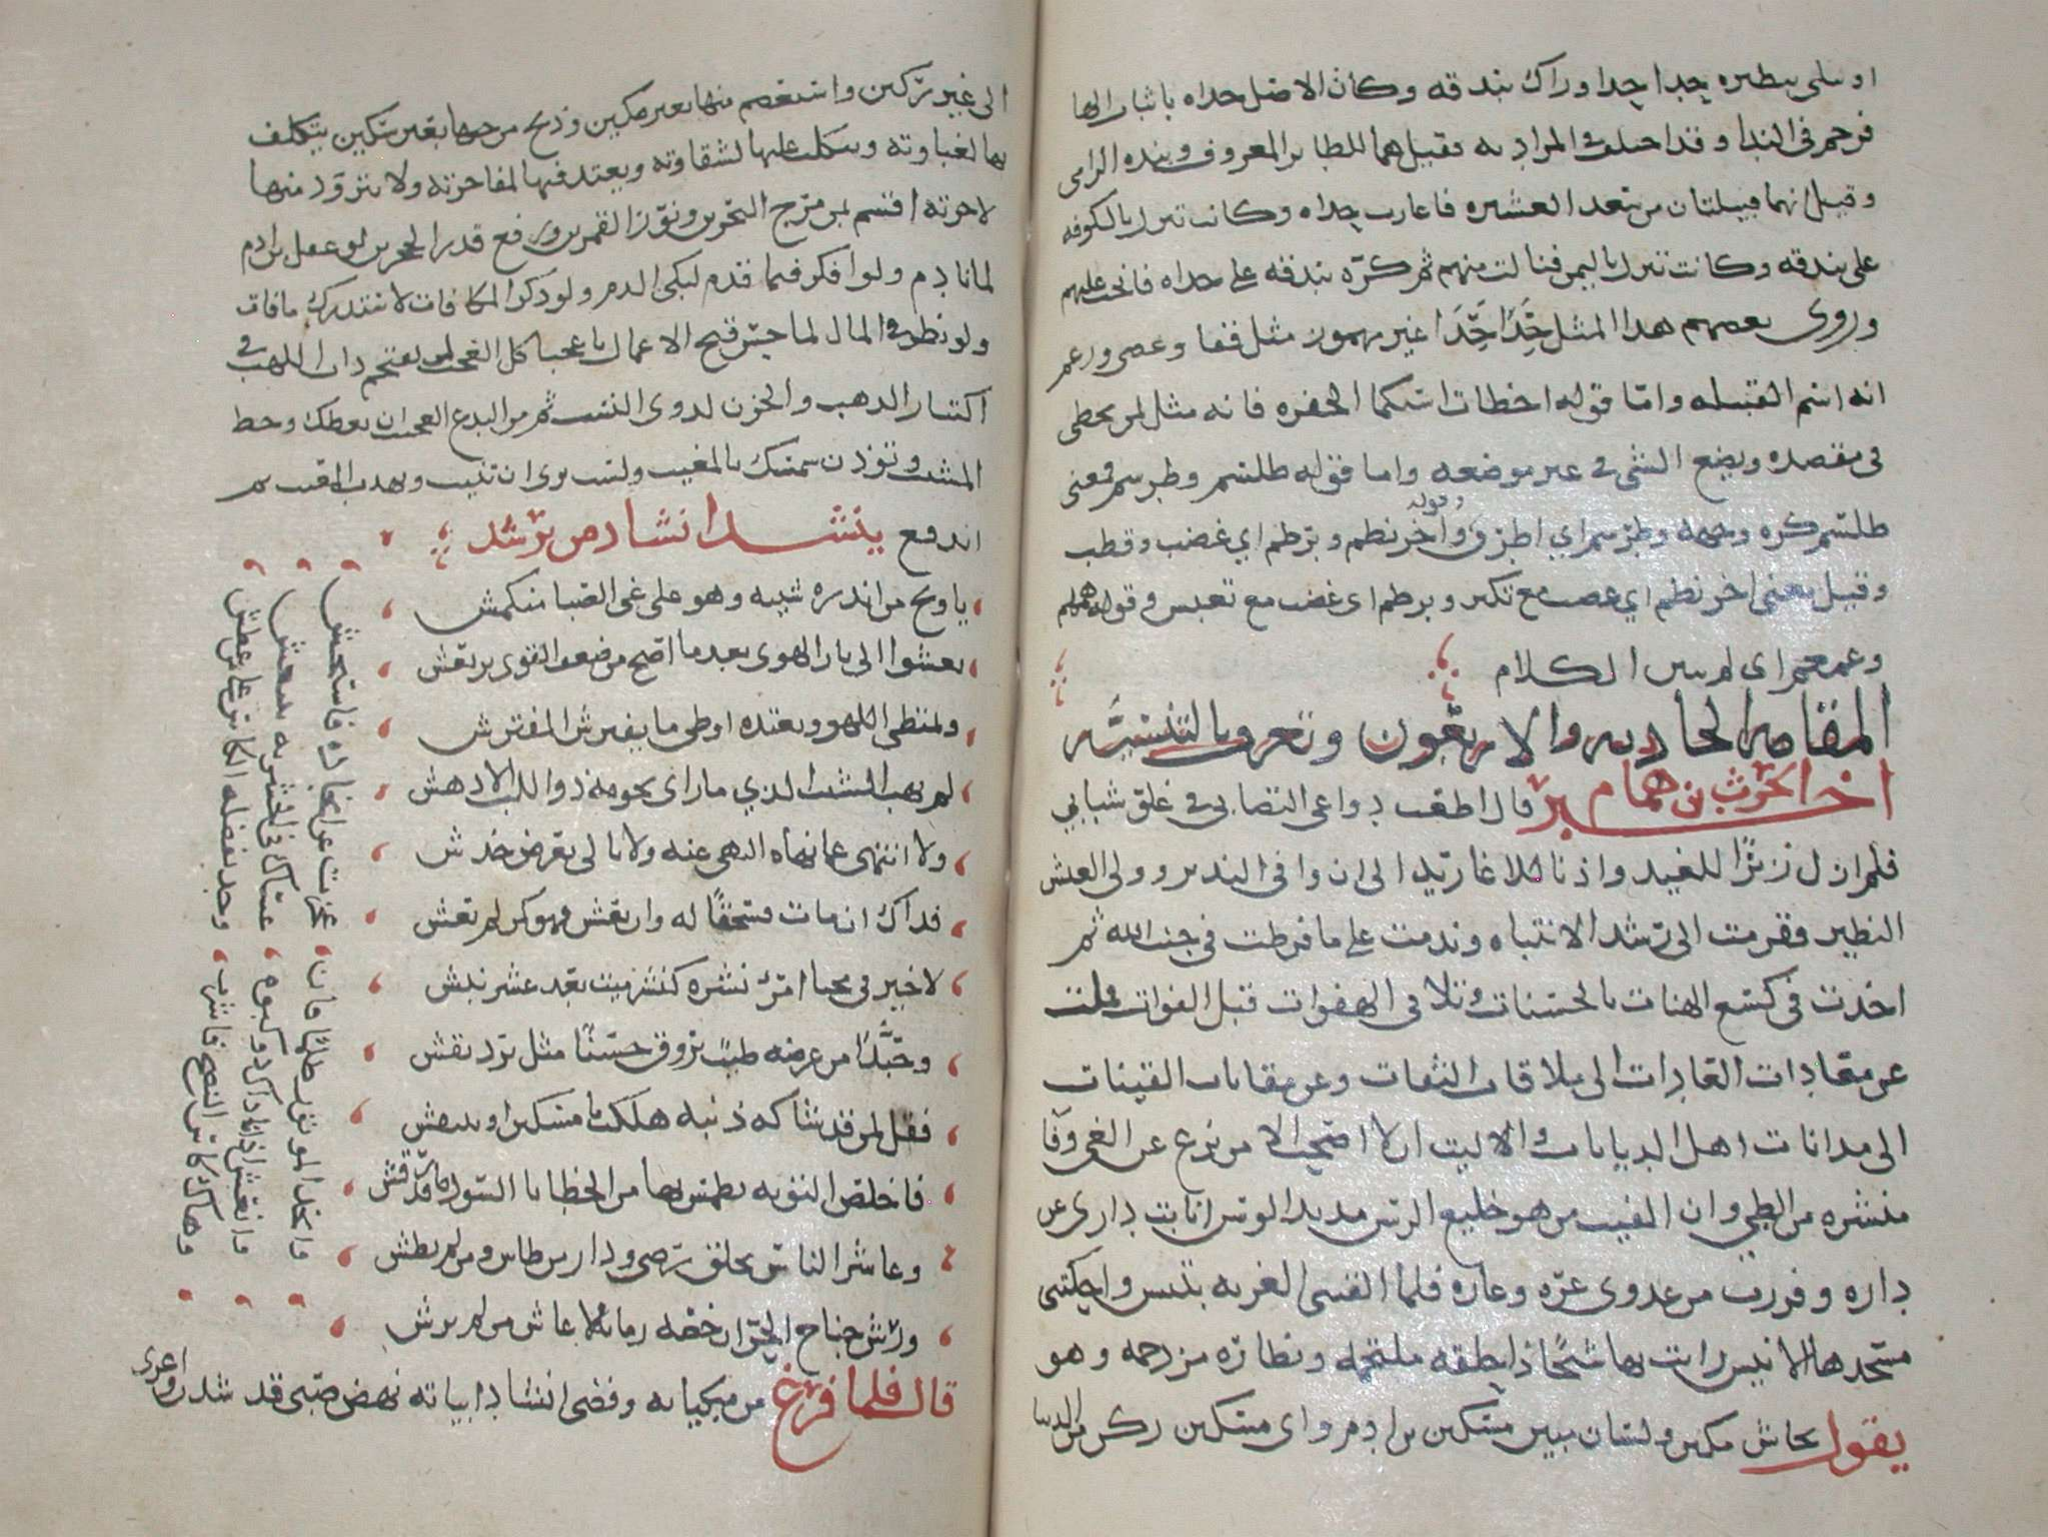 او سلمى بطيره حدا حدا وراك بندقه وكان الاصل حداه باثبات الها
فرخم في الندا وقد اختلف في المراد به فقيل هما للطاير المعروف وبنده الرامي
وقيل انهما قبيلتان من سعد العشيره فاغارت حداه وكانت تنزل بالكوفه
على بندقه وكانت تنزل باليمن فنالت منهم ثم كرّه بندقه على حداه فانحت عليهم
وروى بعضهم هدا المثل حِّدًا حِّدَا غير مهموز مثل قفا وعصى وزعم
انه اسم القبيله وامّا قوله اخطات استكما الحفره فانه مثل لمن يخطي
في مقصده ويضع الشي في غير موضعه واما قوله طلسم وطرسم فمعنى
طلسم كره وجهه وطرسم اي اطرق وقوله واخرنطم وبرطم اي غضب وقطب
وقيل معنى اخرنطم اي غضب مع تكبر وبرطم اى غضب مع تعبس وقوله همهم
وغمغم اى لم يبين الكلام
المقامه الحاديه والاربعون وتعرف بالتنيسيَّه
اخبر الحرث بن همام قال اطعت دواعى التصابى في غلق شبابي
فلم ازل زيرًا للغيد واذنا للاغاريد الى ان وافى النذير وولى العيش
النضير فقرمت الى رشد الانتباه وندمت على ما فرطت في جنب الله ثم
اخذت في كسع الهنات بالحسنات وتلافى الهفوات قبل الفوات فملت
عن مغادات الغادات الى ملاقات الثقات وعن مقانات القينات
الى مدانات اهل الديانات واليت ان لا اصحب الا من نزع عن الغي وفآ
منشره من الطي وان الفيت من هو خليع الرسن مديد الوسن انابت دارى عن
داره وفررت من عدوى عرّه وعاره فلما القتنى الغربه بتنيس واحكتنى
مسجدها الانيس رايت بها شيخًا ذا حلقه ملتحمه ونظاره مزدحمه وهو
يقول بجاش مكين ولسان مبين مسكين بن ادم واى مسكين ركن من الدنيا
الى غير ركين واستعصم منها بغير مكين وذبح من حبها بغير سكين يكلف
بها لغباوته ويتكلب عليها لشقاوته ويعتد فيها لمفاخرته ولا يتزود منها
لاخرته اقسم بمن مرج البحرين ونوّر القمرين ورفع قدر الحجرين لو عقل بن ادم
لما نادم ولو افكر فيما قدم لبكى الدم ولو ذكر المكافات لاستدرك ما فات
ولو نظر في المال لما حسّن قبيح الاعمال يا عجبا كل العجب لمن يقتحم ذات اللهب في
اكتناز الذهب والخزن لذوى النسب ثم من البدع العجيب ان يعظك وخط
المشيب وتوذن شمسك بالمغيب ولست ترى ان تنيب وتهذب المعيب ثم
اندفع ينشد انشاد من يرشد
يا ويح من انذره شيبه وهو على غي الصبا منكمش
يعشوا الى نار الهوى بعد ما اصبح من ضعف القوى يرتعش
ويمتطى اللهو ويعتده اوطى ما يفترش المفترش
لم يهب الشيب الذي ما راى نجومه ذو اللب الا دهش
ولا انتهى عما نهاه النهى عنه ولا بالى بعرض خدش
فذاك ان مات فسحقًا له وان يعش فهو كمن لم يعش
لا خير في محيا امرء نشره كنشر ميت بعد عشر نبش
وحبّذا من عرضه طيبٌ يروق حسنًا مثل برد نقش
فقل لمن قد شاكه ذنبه هلكت يا مسكين او تنتقش
فاخلص التوبه تطمس بها من الخطايا السود ما قد نقش
وعاشر الناس بخلق رضى ودار من طاش ومن لم يطش
وريّش جناح الحرّ ان حصّه زمانه لا عاش من لم يرش
وانجد الموتور ظلمًا فان عجزت عن انجاده فاستجش
وانعش اذا ناداك ذو كبوه عساك في الحشر به تنتعش
وهاك كاس النصح فاشرب وجد بفضله الكاس على من عطش
قال فلما فرغ من مبكياته وقضى انشاد ابياته نهض صبى قد شدن واعرى